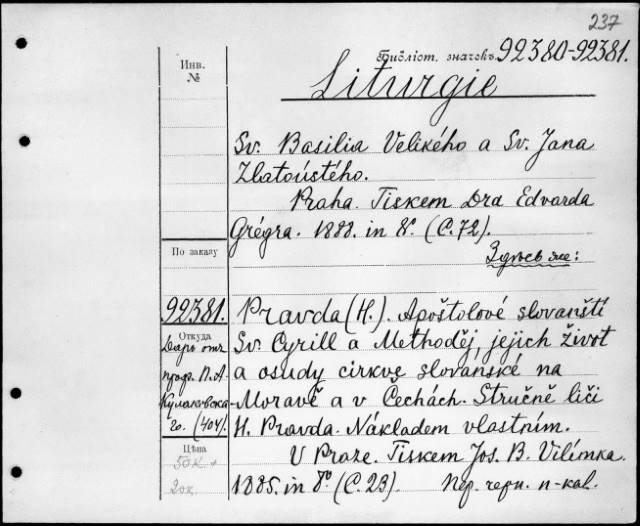 237
Библіот. значокъ 92380-92381.
Инв.
№
Liturgie
Sv. Basilia Velikého a Sv. Jana
Zlatoústého.
Praha. Tiskem Dra Edvarda
Grégra. 1888. in 8º. (С. 72).
По заказу
Здѣсь же:
92381.
Pravda (H.). Apoštolové slovanští
Откуда
Sv. Cyrill a Methoděj, jejich život
Даръ отъ
a osudy cirkve slovanské na
проф. П. А.
Moravě a v Čechách. Stručně líčí
Кулаковска-
го. (404).
H. Pravda. Nákladem vlastním.
Цѣна
V Praze. Tiskem Jos. B. Vilímka.
50к +
20к
1885. in 8º (С. 23).